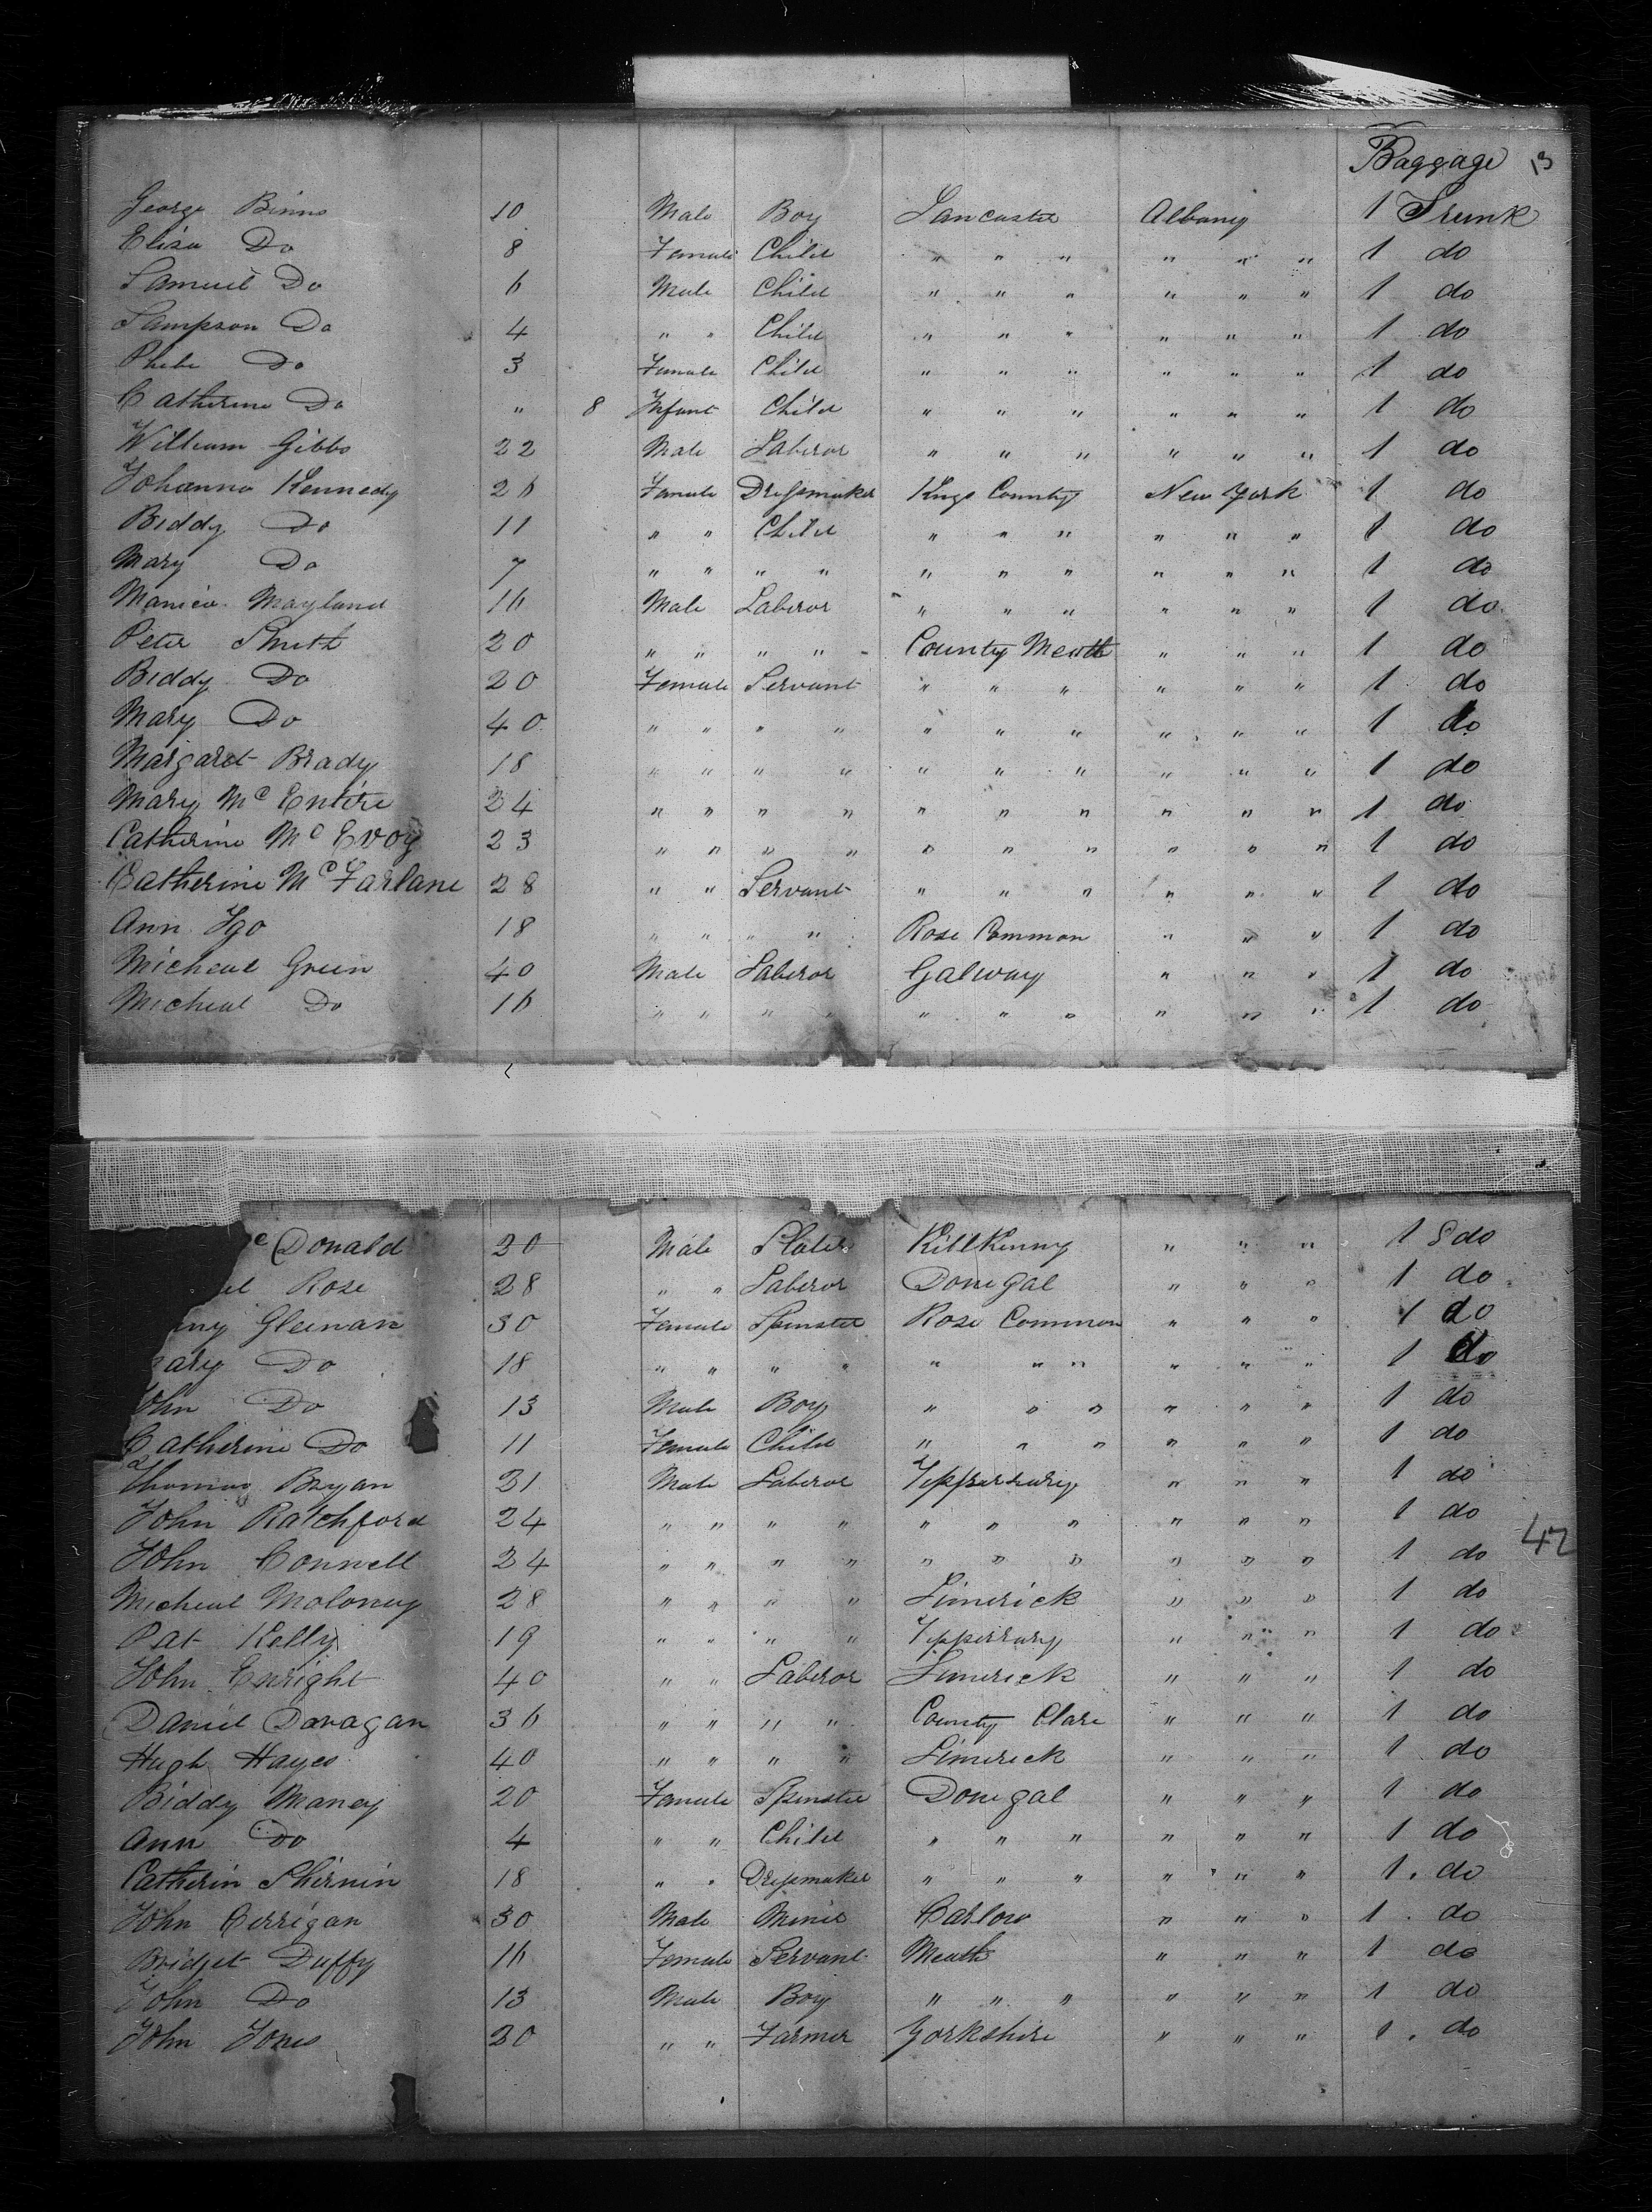 Baggage 13
George Binns 10 Male Boy Lancaster Albany 1 Trunk
Eliza Do 8 Female Child " " " " " " 1 do
Samuel Do 6 Male Child " " " " " " 1 do
Sampson Do 4 " " Child " " " " " " 1 do
Phebe Do 3 Female Child " " " " " " 1 do
Catherine Do " 8 Infant Child " " " " " " 1 do
William Gibbs 22 Male Laberor " " " " " " 1 do
Johanna Kennedy 26 Female Dressmaker Kings County New York 1 do
Biddy Do 11 " " Child " " " " " " 1 do
Mary Do 7 " " " " " " " " " " 1 do
Mayland 16 Male Laberor " " " " " " 1 do
Peter Smith 20 " " " " County Meath " " " 1 do
Biddy Do 20 Female Servant " " " " " " 1 do
Mary Do 40 " " " " " " " " " " 1 do
Margaret Brady 18 " " " " " " " " " " 1 do
Mary Mc Entire 24 " " " " " " " " " " 1 do
Catherine Mc Evoy 23 " " " " " " " " " " 1 do
Catherine Mc Farlane 28 " " Servant " " " " " " 1 do
Ann Igo 18 " " " " Rose Common " " " 1 do
Micheal Green 40 Male Laberor Galway " " " 1 do
Micheal Do 16 " " " " " " " " " " 1 do
c Donald 20 Male Slater Killkenny " " " 1 do
el Rose 28 " " Laberor Donegal " " " 1 do
ny Gleenan 30 Female Spinster Rose Common " " " 1 do
ary Do 18 " " " " " " " " " " 1 do
John Do 13 Male Boy " " " " " " 1 do
Catherine Do 11 Female Child " " " " " " 1 do
Thomas Bryan 21 Male Laberor Tipperrary " " " 1 do
John Ratchford 24 " " " " " " " " " " 1 do
John Connell 24 " " " " " " " " " " 1 do 42
Micheal Moloney 28 " " " " Limerick " " " 1 do
Pat Kelly 19 " " " " Tipperrary " " " 1 do
John Enright 40 " " Laberor Limerick " " " 1 do
Daniel Davagan 36 " " " " County Clare " " " 1 do
Hugh Hayes 40 " " " " Limerick " " " 1 do
Biddy Maney 20 Female Spinster Donegal " " " 1 do
Ann Do 4 " " Child " " " " " " 1 do
Catherin Shirnin 18 " " Dressmaker " " " " " " 1 do
John Cerrigan 30 Male Miner Carlow " " " 1 do
Bridget Duffy 16 Female Servant Meath " " " 1 do
John Do 13 Male Boy " " " " " " 1 do
John Jones 20 " " Farmer Yorkshire " " " 1 do